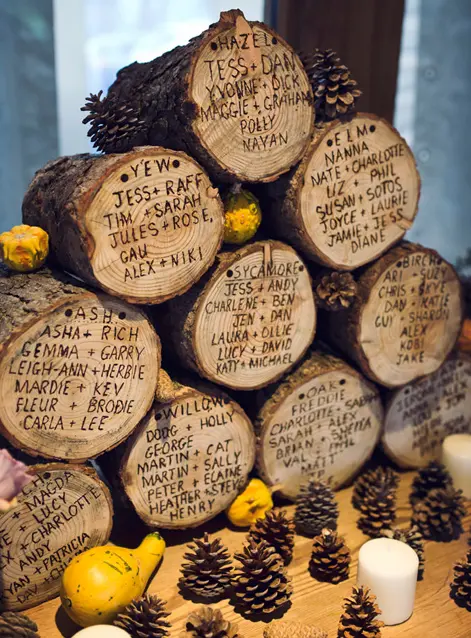 HAZEL
JESS + DAN
YVONNE + DICK
MAGGIE + GRAHAM
POLLY
NAYAN
ELM
NANNA
NATE + CHARLOTTE
LIZ + PHIL
SUSAN + SOTOS
JOYCE + LAURIE
JAMIE + JESS
DIANE
YEW
JESS + RAFF
TIM + SARAH
JULES + ROSE
GAU
ALEX + NIKI
SYCAMORE
JESS + ANDY
CHARLENE + BEN
JEN + DAN
LAURA + OLLIE
LUCY + DAVID
KATY + MICHAEL
BIRCH
ARI + SUZY
CHRIS + SKYE
DAN + KATIE
GUI + SHARON
ALEX
KOBI
JAKE
ASH
ASHA + RICH
GEMMA + GARRY
LEIGH-ANN + HERBIE
MARDIE + KEV
FLEUR + BRODIE
CARLA + LEE
WILLOW
DOUG + HOLLY
GEORGE
MARTIN + CAT
MARTIN + SALLY
PETER + ELAINE
HEATHER + STEVE
HENRY
OAK
FREDDIE
CHARLOTTE +
SARAH + ALEX
SARAH +
BRI + PHIL
VAL +
MATT
MAGDA
LUCY
+ CHARLOTTE
YAN + ANDY
+ PATRICIA
DAV +